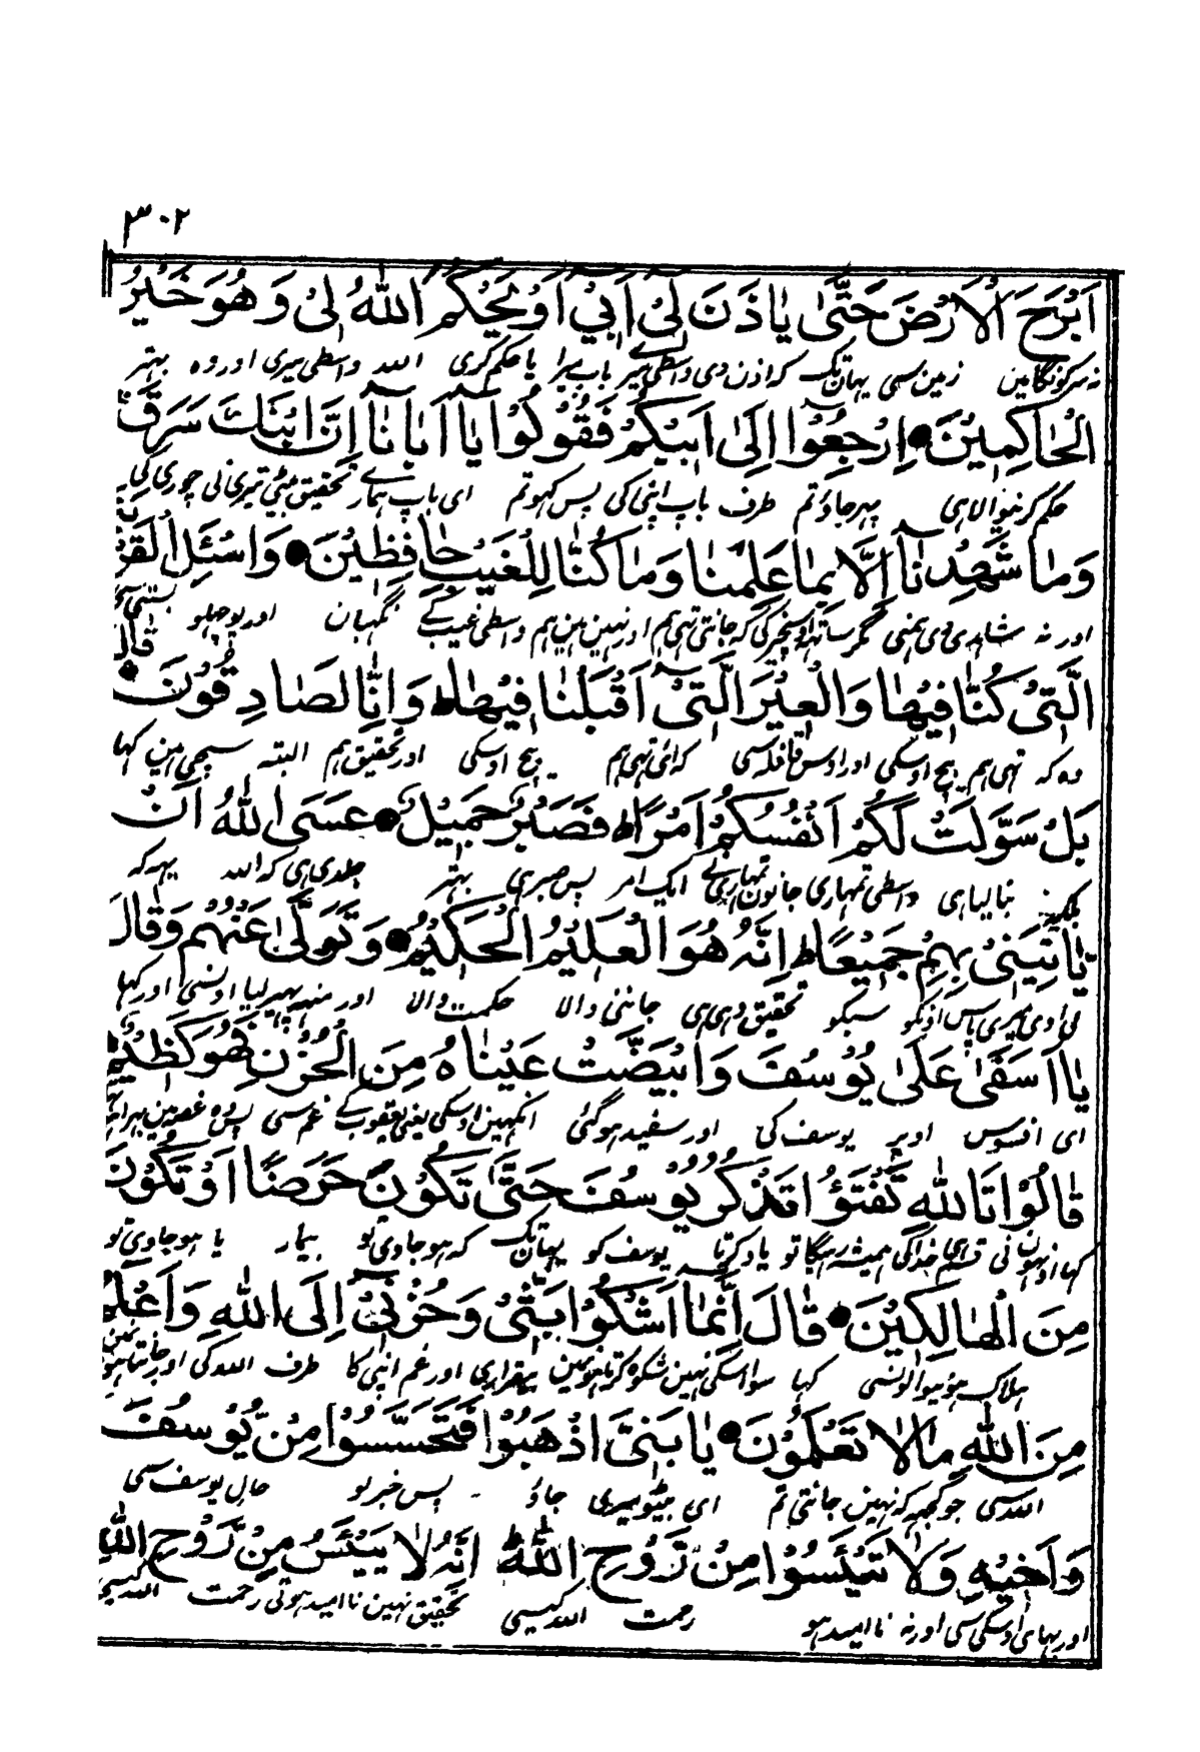 ٣٠٢
اَبْرَحَ الْاَرْضَ حَتّٰى يٰاذَنَ لِىْٓ اَبِىْٓ اَوْ يَحْكُمَ اللّٰهُ لِىْ وَهُوَ خَيْرُ
نہ سرکونگا مین زمین سی یہانتک کہ اذن دی واسطی میرے باپ میرا یا حکم کری اللہ واسطی میری اور وہ بہتر
الْحٰاكِمِيْنَ ● اِرْجِعُوْٓا اِلٰىٓ اَبِيْكُمْ فَقُوْلُوْا يٰٓا اَبٰانٰٓا اِنَّ ابْنَكَ سَرَقَ
حکم کرنیوالا ہی پہر جاؤ تم طرف باپ اپنی کی پس کہو تم ای باپ ہمارے تحقیق بیٹی تیری نی چوری کی
وَمٰا شَهِدْنٰٓا اِلَّا بِمٰا عَلِمْنٰا وَمٰا كُنّٰا لِلْغَيْبِ حٰافِظِيْنَ ● وَاسْئَلِ الْقَرْيَةَ
اور نہ شاہدی دی ہمنی مگر ساتہ اوسچیز کی کہ جانتی تہی ہم اور نہین ہین ہم واسطی غیب کے نگہبان اور پوچہلو بستی سے
الَّتِىْ كُنّٰا فِيْهٰا وَالْعِيْرَ الَّتِىْٓ اَقْبَلْنٰا فِيْهٰا ط وَاِنّٰا لَصٰادِقُوْنَ ● قٰالَ
وہ کہ تہی ہم بیچ اوسکی اور اوس قافلہ سی کہ آئی تہی ہم بیچ اوسکی اور تحقیق ہم البتہ سچی ہین کہا
بَلْ سَوَّلَتْ لَكُمْ اَنْفُسُكُمْ اَمْرًا ط فَصَبْرٌ جَمِيْلٌ ● عَسَى اللّٰهُ اَنْ
بلکہ بنا لیا ہی واسطی تمہاری جانون تمہاری نے ایک امر پس صبر ہی بہتر جلدی ہی کہ اللہ یہہ کہ
يٰاتِيَنِىْ بِهِمْ جَمِيْعًا ط اِنَّهُ هُوَ الْعَلِيْمُ الْحَكِيْمُ ● وَتَوَلّٰى عَنْهُمْ وَقٰالَ
لی آوی میری پاس اونکو سبکو تحقیق وہی ہی جاننی والا حکمت والا اور منہہ پہیر لیا اونسی اور کہا
يٰٓا اَسَفٰى عَلٰى يُوْسُفَ وَابْيَضَّتْ عَيْنٰاهُ مِنَ الْحُزْنِ فَهُوَ كَظِيْمٌ
ای افسوس اوپر یوسف کی اور سفید ہوگئی آنکہین اوسکی یعنی یعقوب کے غم سی پس وہ غصہ مین بہرا
قٰالُوْا تَاللّٰهِ تَفْتَؤُا تَذْكُرُ يُوْسُفَ حَتّٰى تَكُوْنَ حَرَضًا اَوْ تَكُوْنَ
کہا اونہون نی قسم ہی خدا کی ہمیشہ رہیگا تو یاد کرتا یوسف کو یہانتک کہ ہو جاوی تو بیمار یا ہو جاوی تو
مِنَ الْهٰالِكِيْنَ ● قٰالَ اِنَّمٰٓا اَشْكُوْا بَثِّىْ وَحُزْنِىْٓ اِلَى اللّٰهِ وَاَعْلَمُ
ہلاک ہونیوالونسی کہا سوا اسکی نہین شکوہ کرتا ہون مین بیقراری اور غم اپنی کا طرف اللہ کی اور جانتا ہون
مِنَ اللّٰهِ مٰا لٰا تَعْلَمُوْنَ ● يٰا بَنِىَّ اذْهَبُوْا فَتَحَسَّسُوْا مِنْ يُوْسُفَ
اللہ سی جو کچہہ کہ نہین جانتی تم ای بیٹو میری جاؤ پس خبر لو حال یوسف سی
وَاَخِيْهِ وَلٰا تَيْئَسُوْا مِنْ رَوْحِ اللّٰهِ ط اِنَّهُ لٰا يَيْئَسُ مِنْ رَوْحِ اللّٰهِ
اور بہای اوسکی سی اور نہ ناامید ہو رحمت اللہ کیسی تحقیق نہین ناامید ہوتی رحمت اللہ کیسی